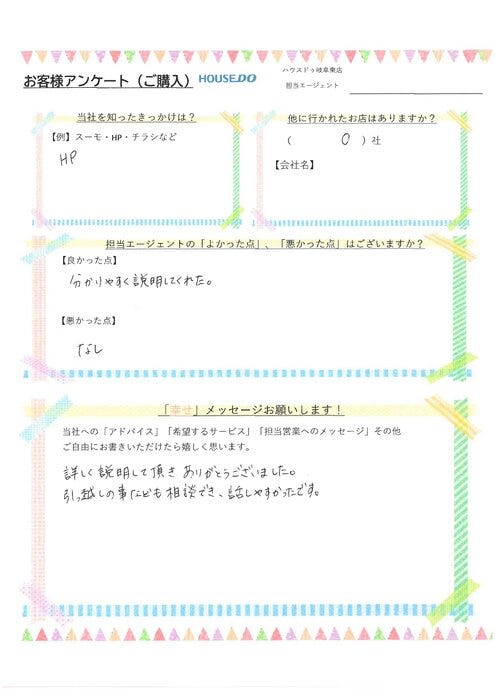 お客様アンケート（ご購入） HOUSEDO
ハウスドゥ岐阜東店
担当エージェント
当社を知ったきっかけは？
【例】スーモ・HP・チラシなど
HP
他に行かれたお店はありますか？
（ 0 ）社
【会社名】
担当エージェントの「よかった点」、「悪かった点」はございますか？
【良かった点】
分かりやすく説明してくれた。
【悪かった点】
なし
「幸せ」メッセージお願いします！
当社への「アドバイス」「希望するサービス」「担当営業へのメッセージ」その他
ご自由にお書きいただけたら嬉しく思います。
詳しく説明して頂きありがとうございました。
引っ越しの事なども相談でき、話しやすかったです。